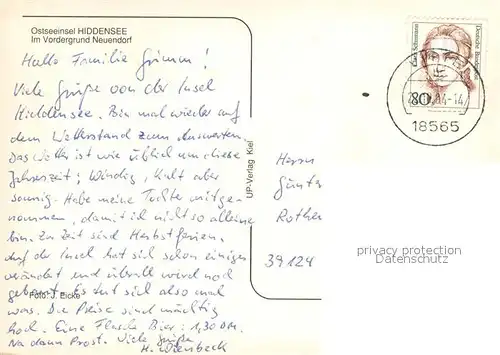 Ostseeinsel HIDDENSEE
Im Vordergrund Neuendorf
Hallo Familie Grimm!
Viele Grüße von der Insel
Hiddensee. Bin mal wieder auf
dem Wetterstand zum Auswerten.
Das Wetter ist wie üblich um diese
Jahreszeit; Windig, Kalt aber
sonnig. Habe meine Tochter mitge-
nommen, damit ich nicht so alleine
bin. Zur Zeit sind Herbstferien.
Auf der Insel hat sich schon einiges
verändert und überall wird noch
gebaut. Es tut sich also mal
was. Die Preise sind mächtig
hoch. Eine Flasche Bier: 1,30 DM.
Na dann Prost. Viele Grüße
H.
Foto: J. Eicke
UP-Verlag Kiel
Clara Schumann
Deutsche Bundespost
80
94-14
18565
Herrn
Günter
Rother
39124
privacy protection
Datenschutz